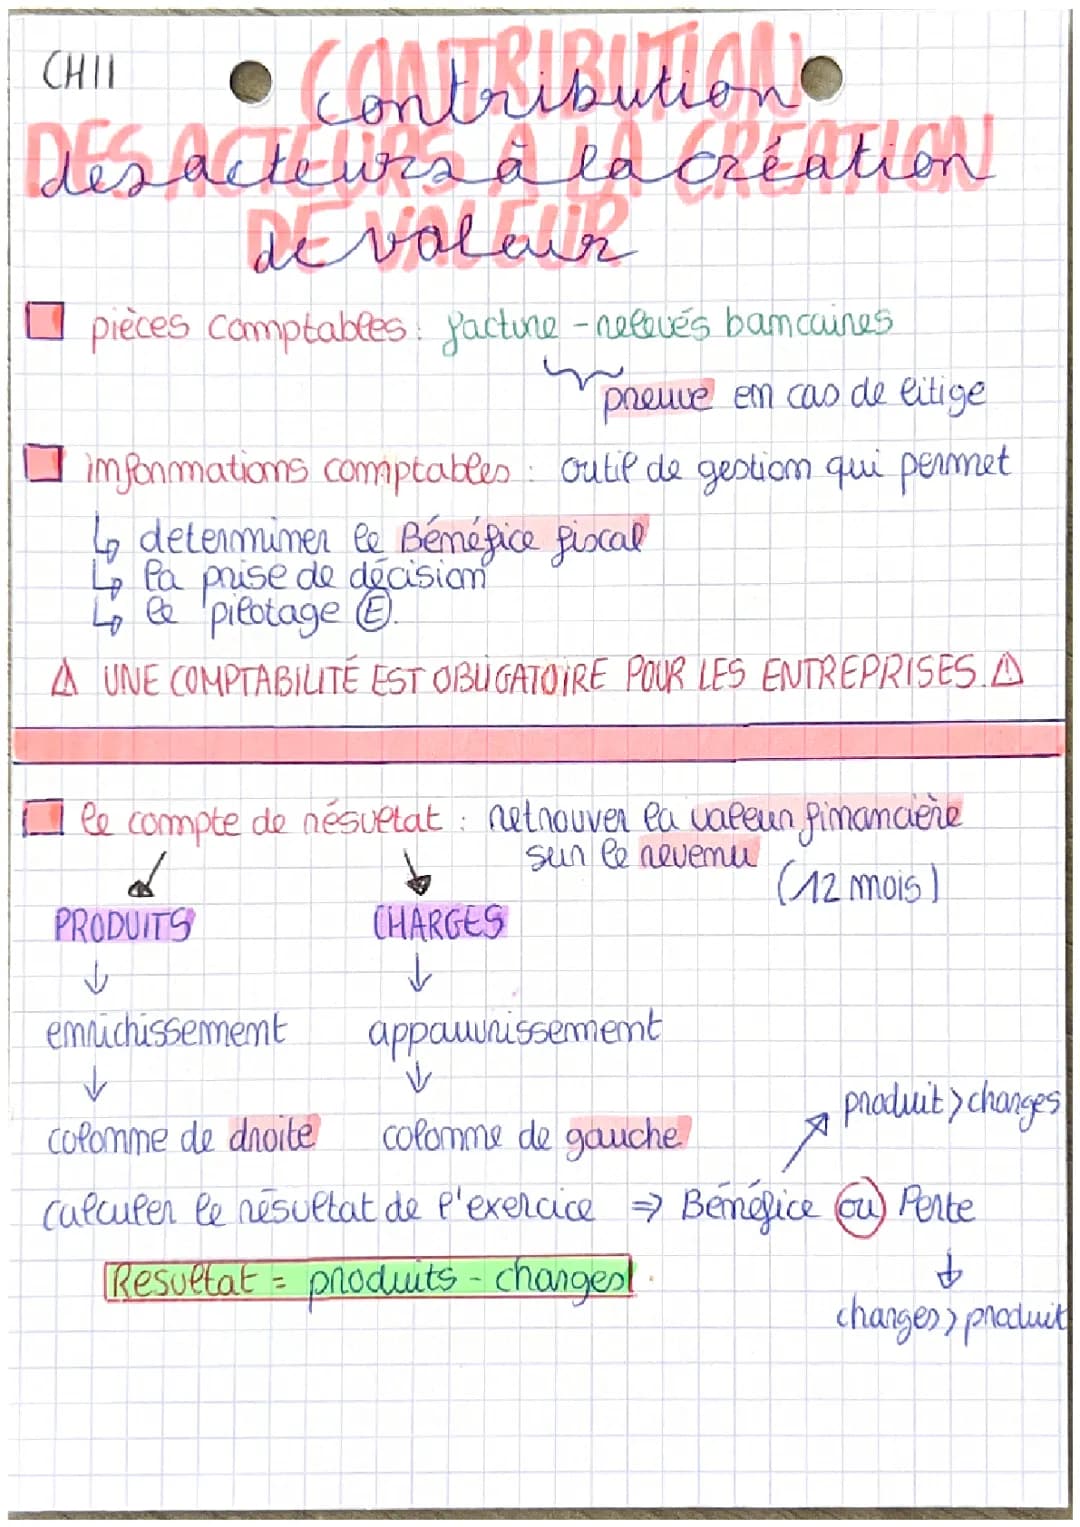 CH11
CONTRIBUTION
contribution
DES ACTEURS À LA CRÉATION
des acteurs à la création
DE VALEUR
de valeur
pièces comptables : facture - relevés bancaires
preuve en cas de litige
informations comptables : outil de gestion qui permet
↳ determiner le Bénéfice fiscal
↳ la prise de décision
↳ le pilotage Ⓔ.
⚠ UNE COMPTABILITÉ EST OBLIGATOIRE POUR LES ENTREPRISES ⚠
le compte de résultat : retrouver la valeur financière
sur le revenu
(12 mois)
PRODUITS CHARGES
↓ ↓
enrichissement appauvrissement
↓ ↓
produit > charges
colonne de droite colonne de gauche
calculer le résultat de l'exercice ⇒ Bénéfice ou Perte
Resultat = produits - charges
↓
charges > produit